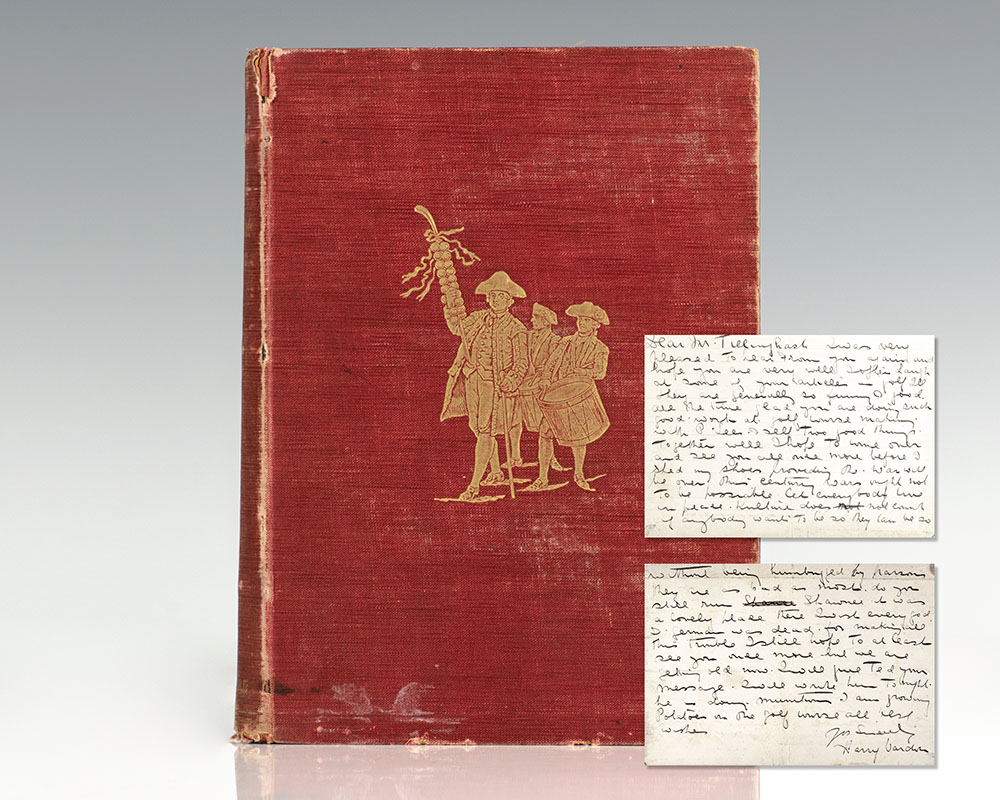 Dear Mr. Tillinghast I was very
pleased to hear from you again and
hope you are very well I often laugh
at some of your articles in golf Ill
they are generally so funny & good.
all the time glad you are doing such
good work at golf course making
with I see & sell two good things
together well I hope to come over
and see you all once more before I
shed my shoes providing the war will
be over, this century wars ought not
to be possiable let everybody live
in peace. Kulture does not count
if anybody wants to be so they can be so
without being humbugged by parsons
they are as bad as most. do you
still run Shawnee it was
a lovely place there I wish every god
D. german was dead. for making all
this trouble I still hope to at least
see you once more but we are
getting old now. I will give Ted your
message. I will write him to night.
he is doing munition I am growing
Potatoes on the golf course all best
wishes
Yrs Sincerely
Harry Vardon